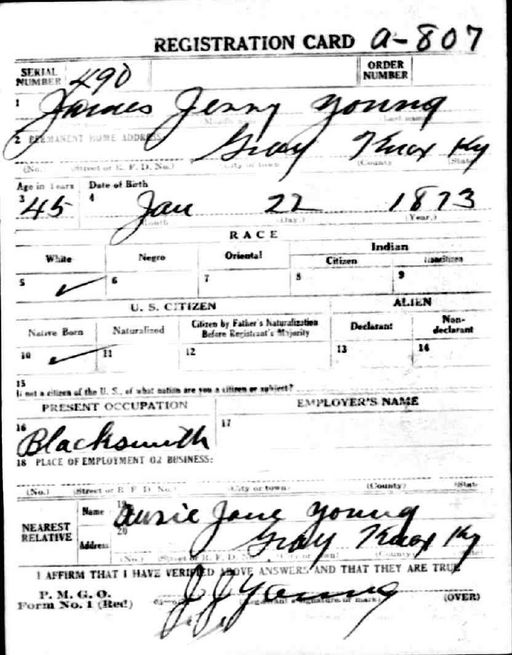 REGISTRATION CARD A-807
SERIAL NUMBER 490 ORDER NUMBER
1 James Jenny Young
2 PERMANENT HOME ADDRESS: Gray Knox Ky
(No.) (Street or R. F. D. No.) (City or town) (County) (State)
Age in Years Date of Birth
3 45 4 Jan 22 1873
(Month) (Day.) (Year.)
RACE
White Negro Oriental Indian
Citizen Noncitizen
5 ✓ 6 7 8 9
U. S. CITIZEN ALIEN
Native Born Naturalized Citizen by Father's Naturalization Before Registrant's Majority Declarant Non-declarant
10 ✓ 11 12 13 14
15
If not a citizen of the U. S., of what nation are you a citizen or subject?
PRESENT OCCUPATION EMPLOYER'S NAME
16 Blacksmith 17
18 PLACE OF EMPLOYMENT OR BUSINESS:
(No.) (Street or R. F. D. No.) (City or town) (County) (State)
NEAREST RELATIVE Name 19 Jane Young
Address 20 Gray Knox Ky
(No.) (Street or R. F. D. No.) (County)
I AFFIRM THAT I HAVE VERIFIED ABOVE ANSWERS AND THAT THEY ARE TRUE
P. M. G. O.
Form No. 1 (Red) J J Young (OVER)
(Registrant's signature or mark)